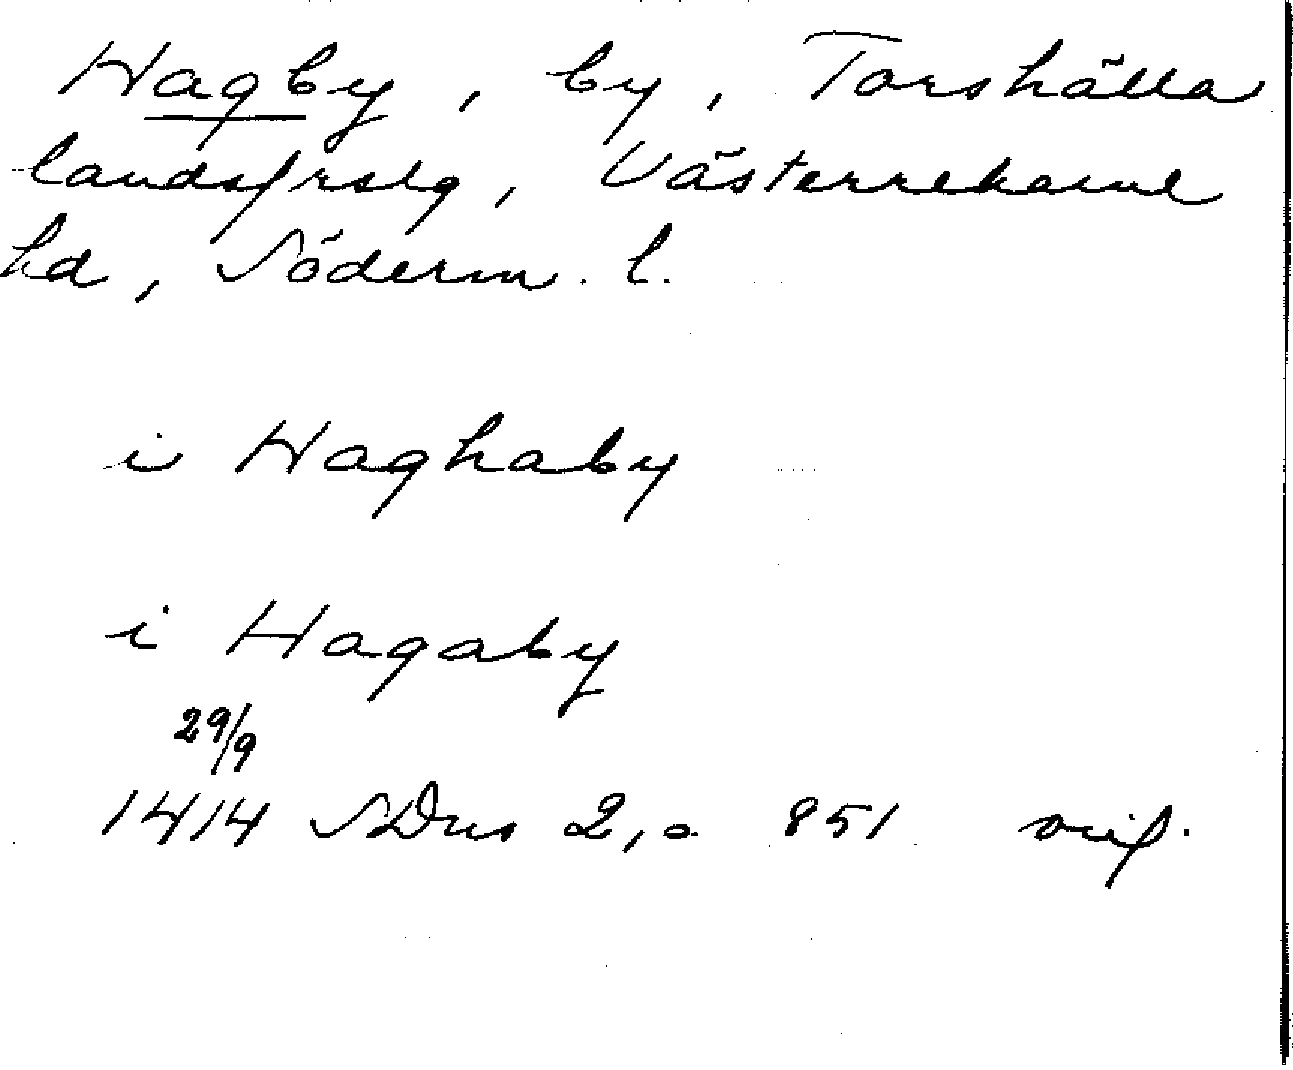 Hagby, by, Torshälla
landsfrslg, Västerrekarne
hd, Söderm. l.
i Haghaby
i Hagaby
29/9
1414 SDns 2, s. 851 orig.